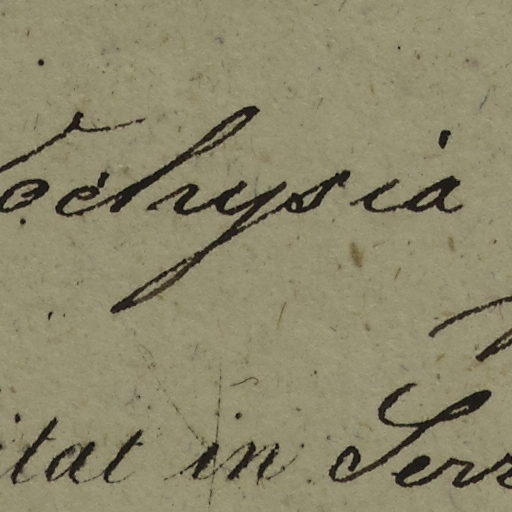 Vochysia
itat in Serr